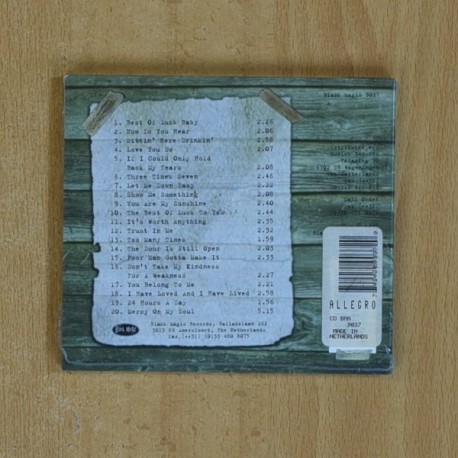 Black Magic 9037
1. Best Of Luck Baby 2.26
2. How Do You Hear 2.06
3. Sittin' Here Drinkin' 2.58
4. Love You So 2.07
5. If I Could Only Hold
Back My Tears 2.08
6. Three Times Seven 2.46
7. Let Me Down Easy 2.22
8. Show Me Something 2.08
9. You Are My Sunshine 2.40
10. The Best Of Luck To You 2.44
11. It's Worth Anything 2.35
12. Trust In Me 2.52
13. Too Many Times 1.59
14. The Door Is Still Open 2.03
15. Poor Man Gotta Make It 2.33
16. Don't Take My Kindness
For A Weakness 2.27
17. You Belong To Me 2.21
18. I Have Loved And I Have Lived 2.58
19. 24 Hours A Day 1.56
20. Mercy On My Soul 5.15
Black Magic Records,
The Netherlands
ALLEGRO
CD BMA
9037
MADE IN
NETHERLANDS